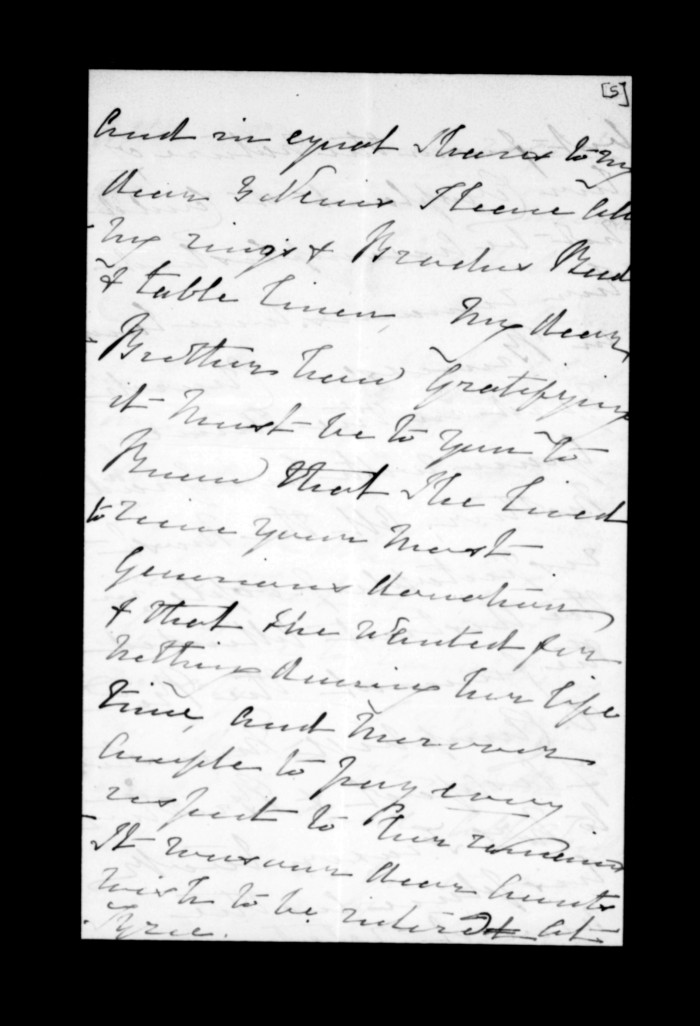 [5]
and in equal shares to my
dear I leave all
my rings & Broches Bed
& table linen, My dear
Brother how Gratifying
it must be to you to
Know that she lived
to receive your most
Generious donation
& that she wanted for
nothing during her life
time, and moreover
ample to pay every
respect to her remains
It was our dear Aunts
wish to be intered at
Tyrie.